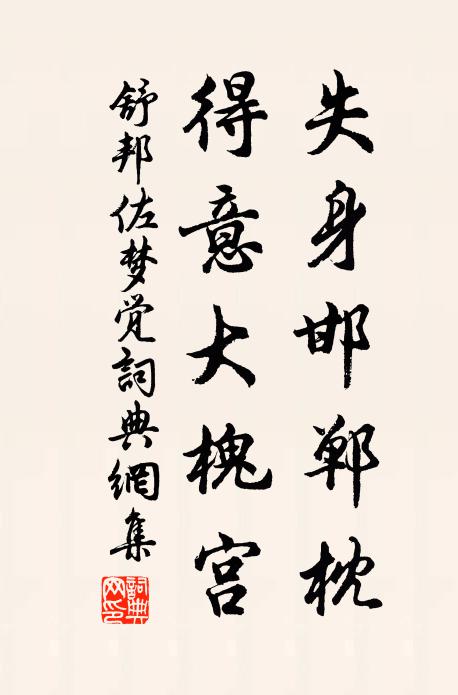 失身邯鄲枕
得意大槐宫
舒邦佐梦觉詞典網集
詞典網印